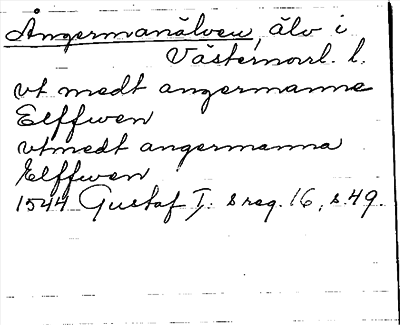 Ångermanälven, älv i
Västernorrl. l.
vt medt angermanne
Elffwen
vtmedt angermanna
Elffwen
1544 Gustaf I: s reg. 16, s. 49.